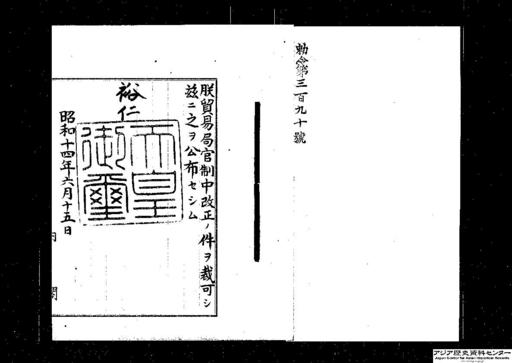 勅令第三百九十號
朕貿易局官制中改正ノ件ヲ裁可シ
茲ニ之ヲ公布セシム
裕仁
天皇御璽
昭和十四年六月十五日
内閣
アジア歴史資料センター
Japan Center for Asian Historical Records